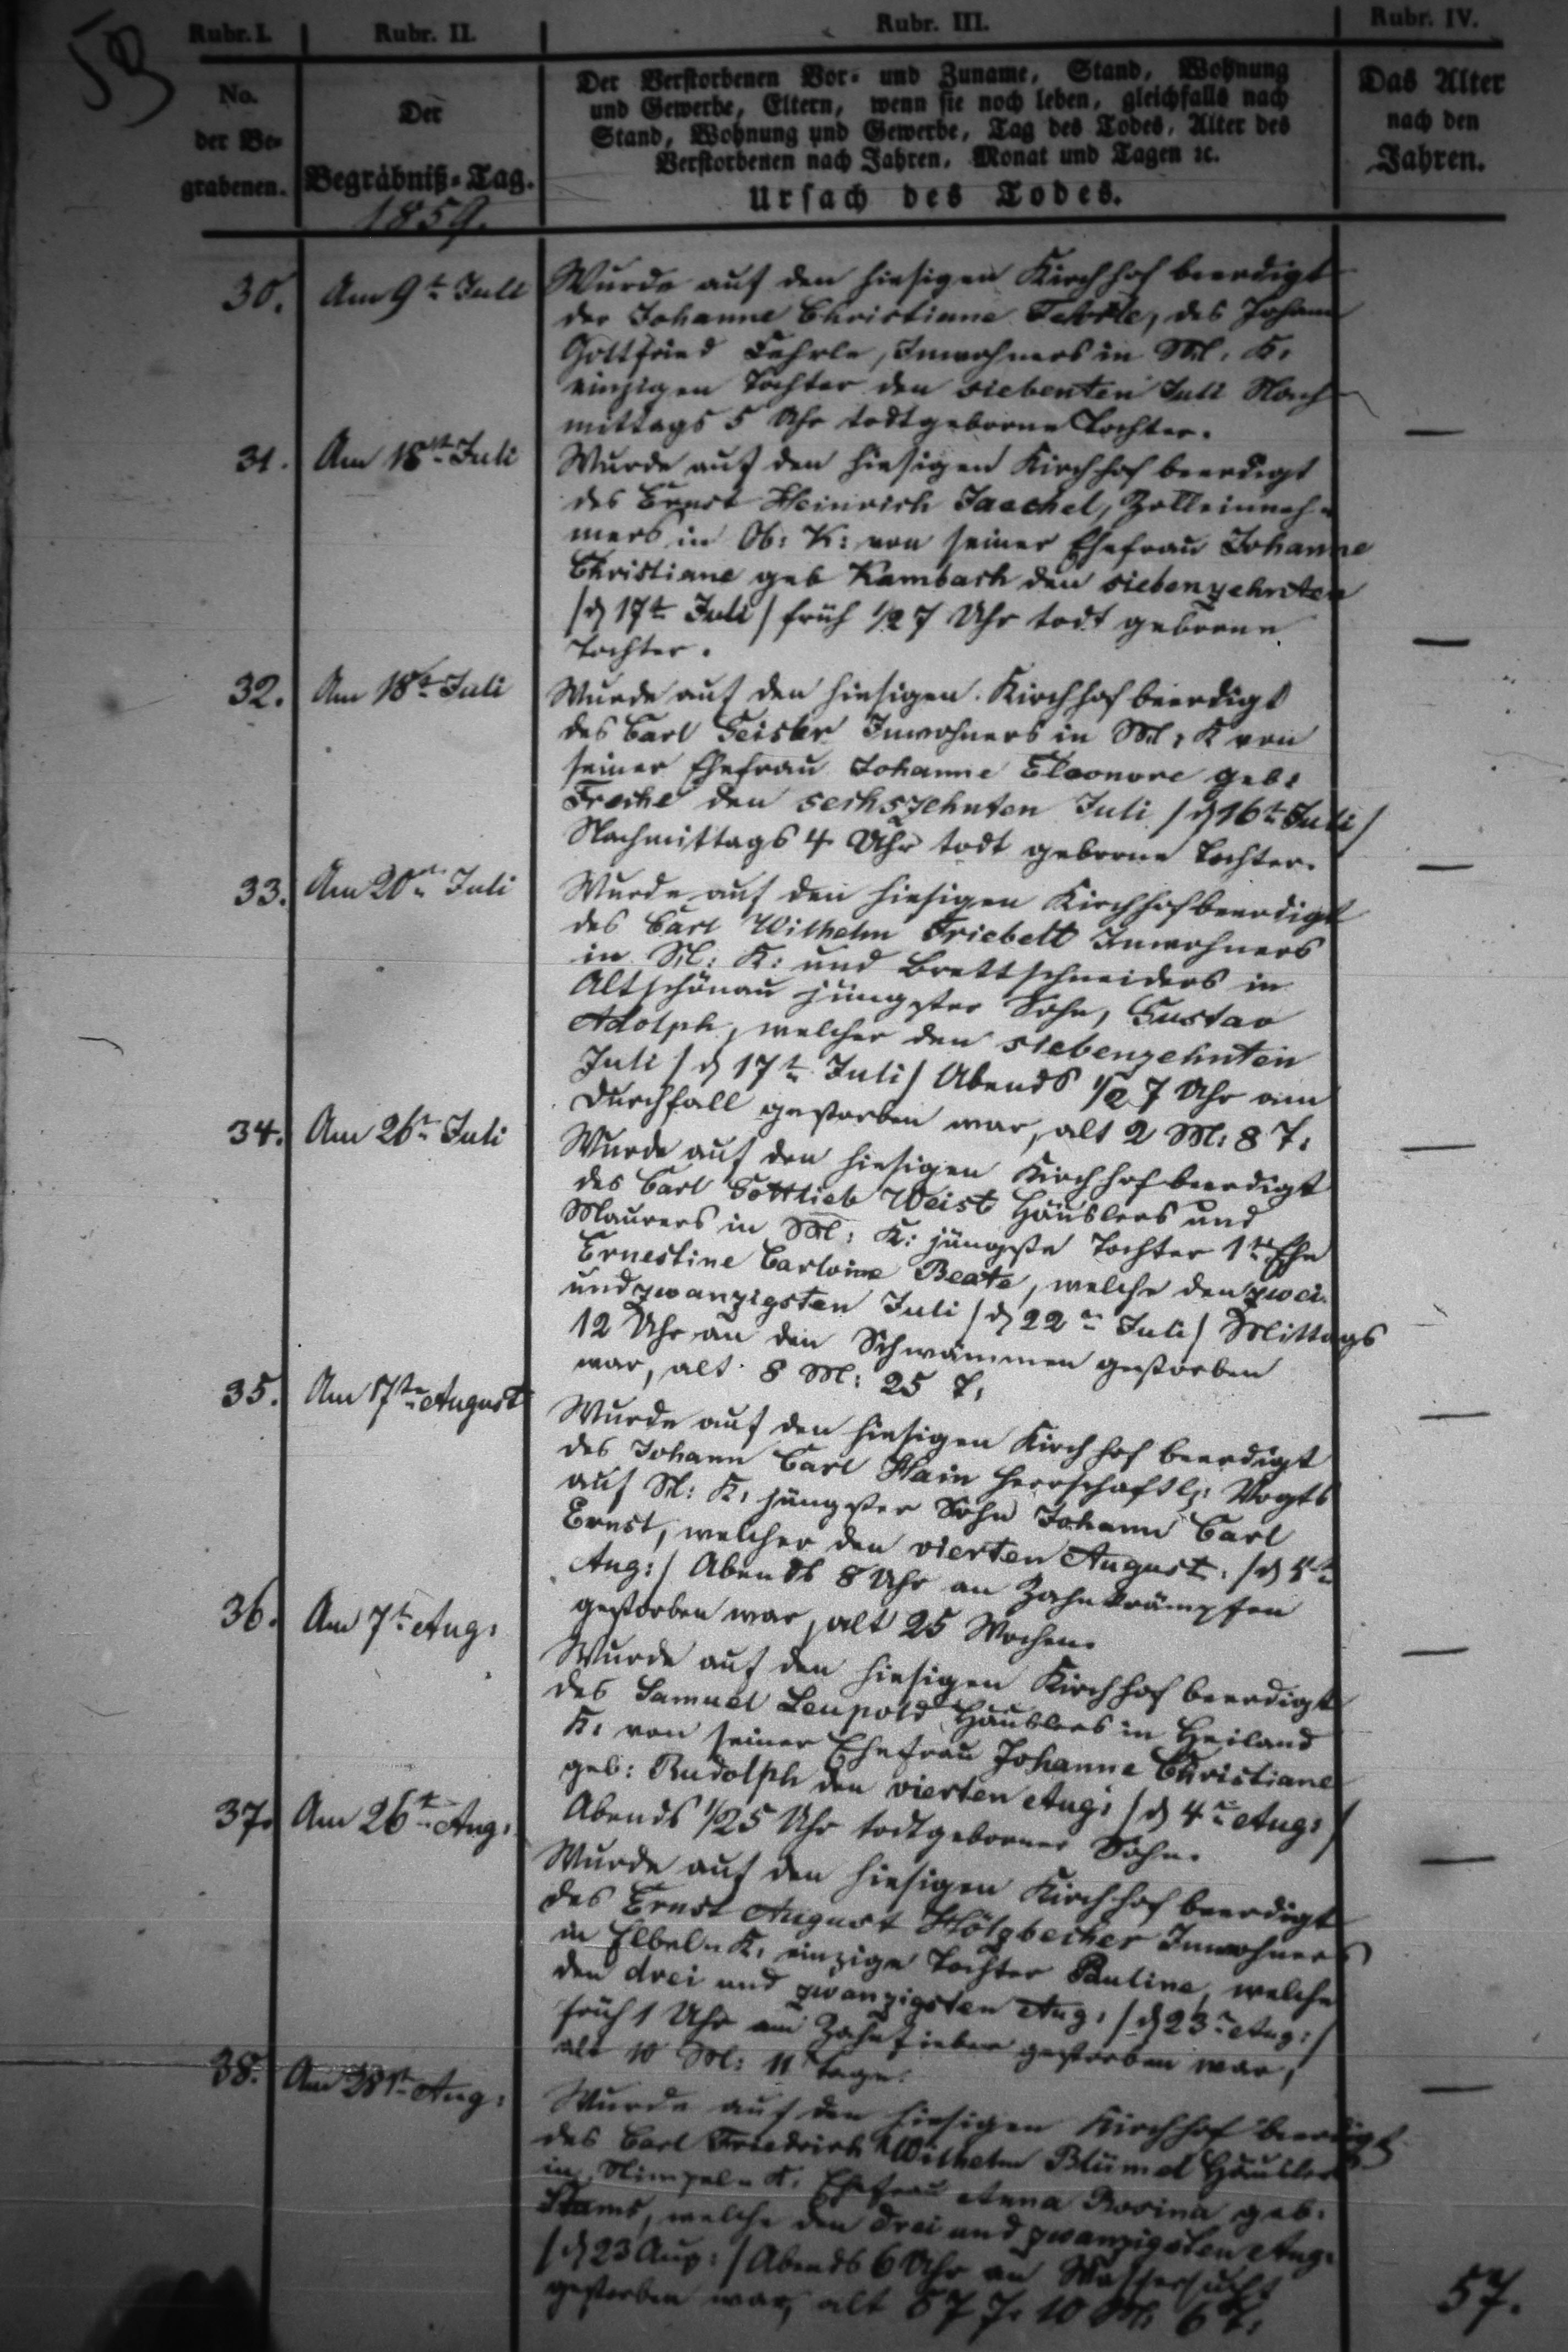 59
Rubr. I. Rubr. II. Rubr. III. Rubr. IV.
No.
der Be-
grabenen.
Der
Begräbniß-Tag.
1859.
Der Verstorbenen Vor- und Zuname, Stand, Wohnung
und Gewerbe, Eltern, wenn sie noch leben, gleichfalls nach
Stand, Wohnung und Gewerbe, Tag des Todes, Alter des
Verstorbenen nach Jahren, Monat und Tagen ꝛc.
Ursach des Todes.
Das Alter
nach den
Jahren.
30. Am 9t Juli Wurde auf den hiesigen Kirchhof beerdigt
der Johanne Christiane Fehrle, des Johann
Gottfried Fehrle, Inwohners in M: K:
einzigen Tochter den siebenten Juli Nach
mittags 5 Uhr todtgeborne Tochter. —
31. Am 18t Juli Wurde auf den hiesigen Kirchhof beerdigt
des Ernst Heinrich Jaeckel, Zolleinneh-
mers in Ob: K: von seiner Ehefrau Johanne
Christiane geb Kambach den siebenzehnten
/d 17t Juli/ früh 1/2 7 Uhr todt geborne
Tochter. —
32. Am 18t Juli Wurde auf den hiesigen Kirchhof beerdigt
des Carl Geisler Inwohners in M: K von
seiner Ehefrau Johanne Eleonore geb:
Freche den sechszehnten Juli /d 16t Juli/
Nachmittags 4 Uhr todt geborne Tochter. —
33. Am 20t Juli Wurde auf den hiesigen Kirchhof beerdigt
des Carl Wilhelm Friebelt Inwohners
in M: K: und Brettschneiders in
Altschönau jüngster Sohn, Gustav
Adolph, welcher den siebenzehnten
Juli /d 17t Juli/ Abends 1/2 7 Uhr am
Durchfall gestorben war, alt 2 M: 8 T: —
34. Am 26t Juli Wurde auf den hiesigen Kirchhof beerdigt
des Carl Gottlieb Weist Häuslers und
Maurers in M: K: jüngste Tochter 1ter Ehe
Ernestine Carloine Beate, welche den zwei
undzwanzigsten Juli /d 22n Juli/ Mittags
12 Uhr an den Schwämmen gestorben
war, alt 8 M: 25 T: —
35. Am 7t August Wurde auf den hiesigen Kirchhof beerdigt
des Johann Carl Hain herrschaftl: Vogts
auf M: K: jüngster Sohn Johann Carl
Ernst, welcher den vierten August: /d 4t
Aug:/ Abends 8 Uhr an Zahnkrämpfen
gestorben war, alt 25 Wochen. —
36. Am 7t Aug: Wurde auf den hiesigen Kirchhof beerdigt
des Samuel Leupold Häuslers in Heiland
K: von seiner Ehefrau Johanne Christiane
geb: Rudolph den vierten Aug: /d 4n Aug:/
Abends 1/2 5 Uhr todtgeborner Sohn. —
37. Am 26t Aug: Wurde auf den hiesigen Kirchhof beerdigt
des Ernst August Hölzbecher Inwohners
in Elbel- K: einzige Tochter Pauline, welche
den drei und zwanzigsten Aug: /d 23n Aug:/
früh 1 Uhr am Zahnfieber gestorben war,
alt 10 M: 11 Tage. —
38. Am Aug: Wurde auf den hiesigen Kirchhof beerdigt
des Carl Friedrich Wilhelm Blümel Häuslers
in K: Ehefrau Anna Rosina geb:
welche den drei und zwanzigsten Aug:
/d 23 Aug:/ Abends 6 Uhr an Wassersucht
gestorben war, alt 57 J. 10 M: 6 T: 57.